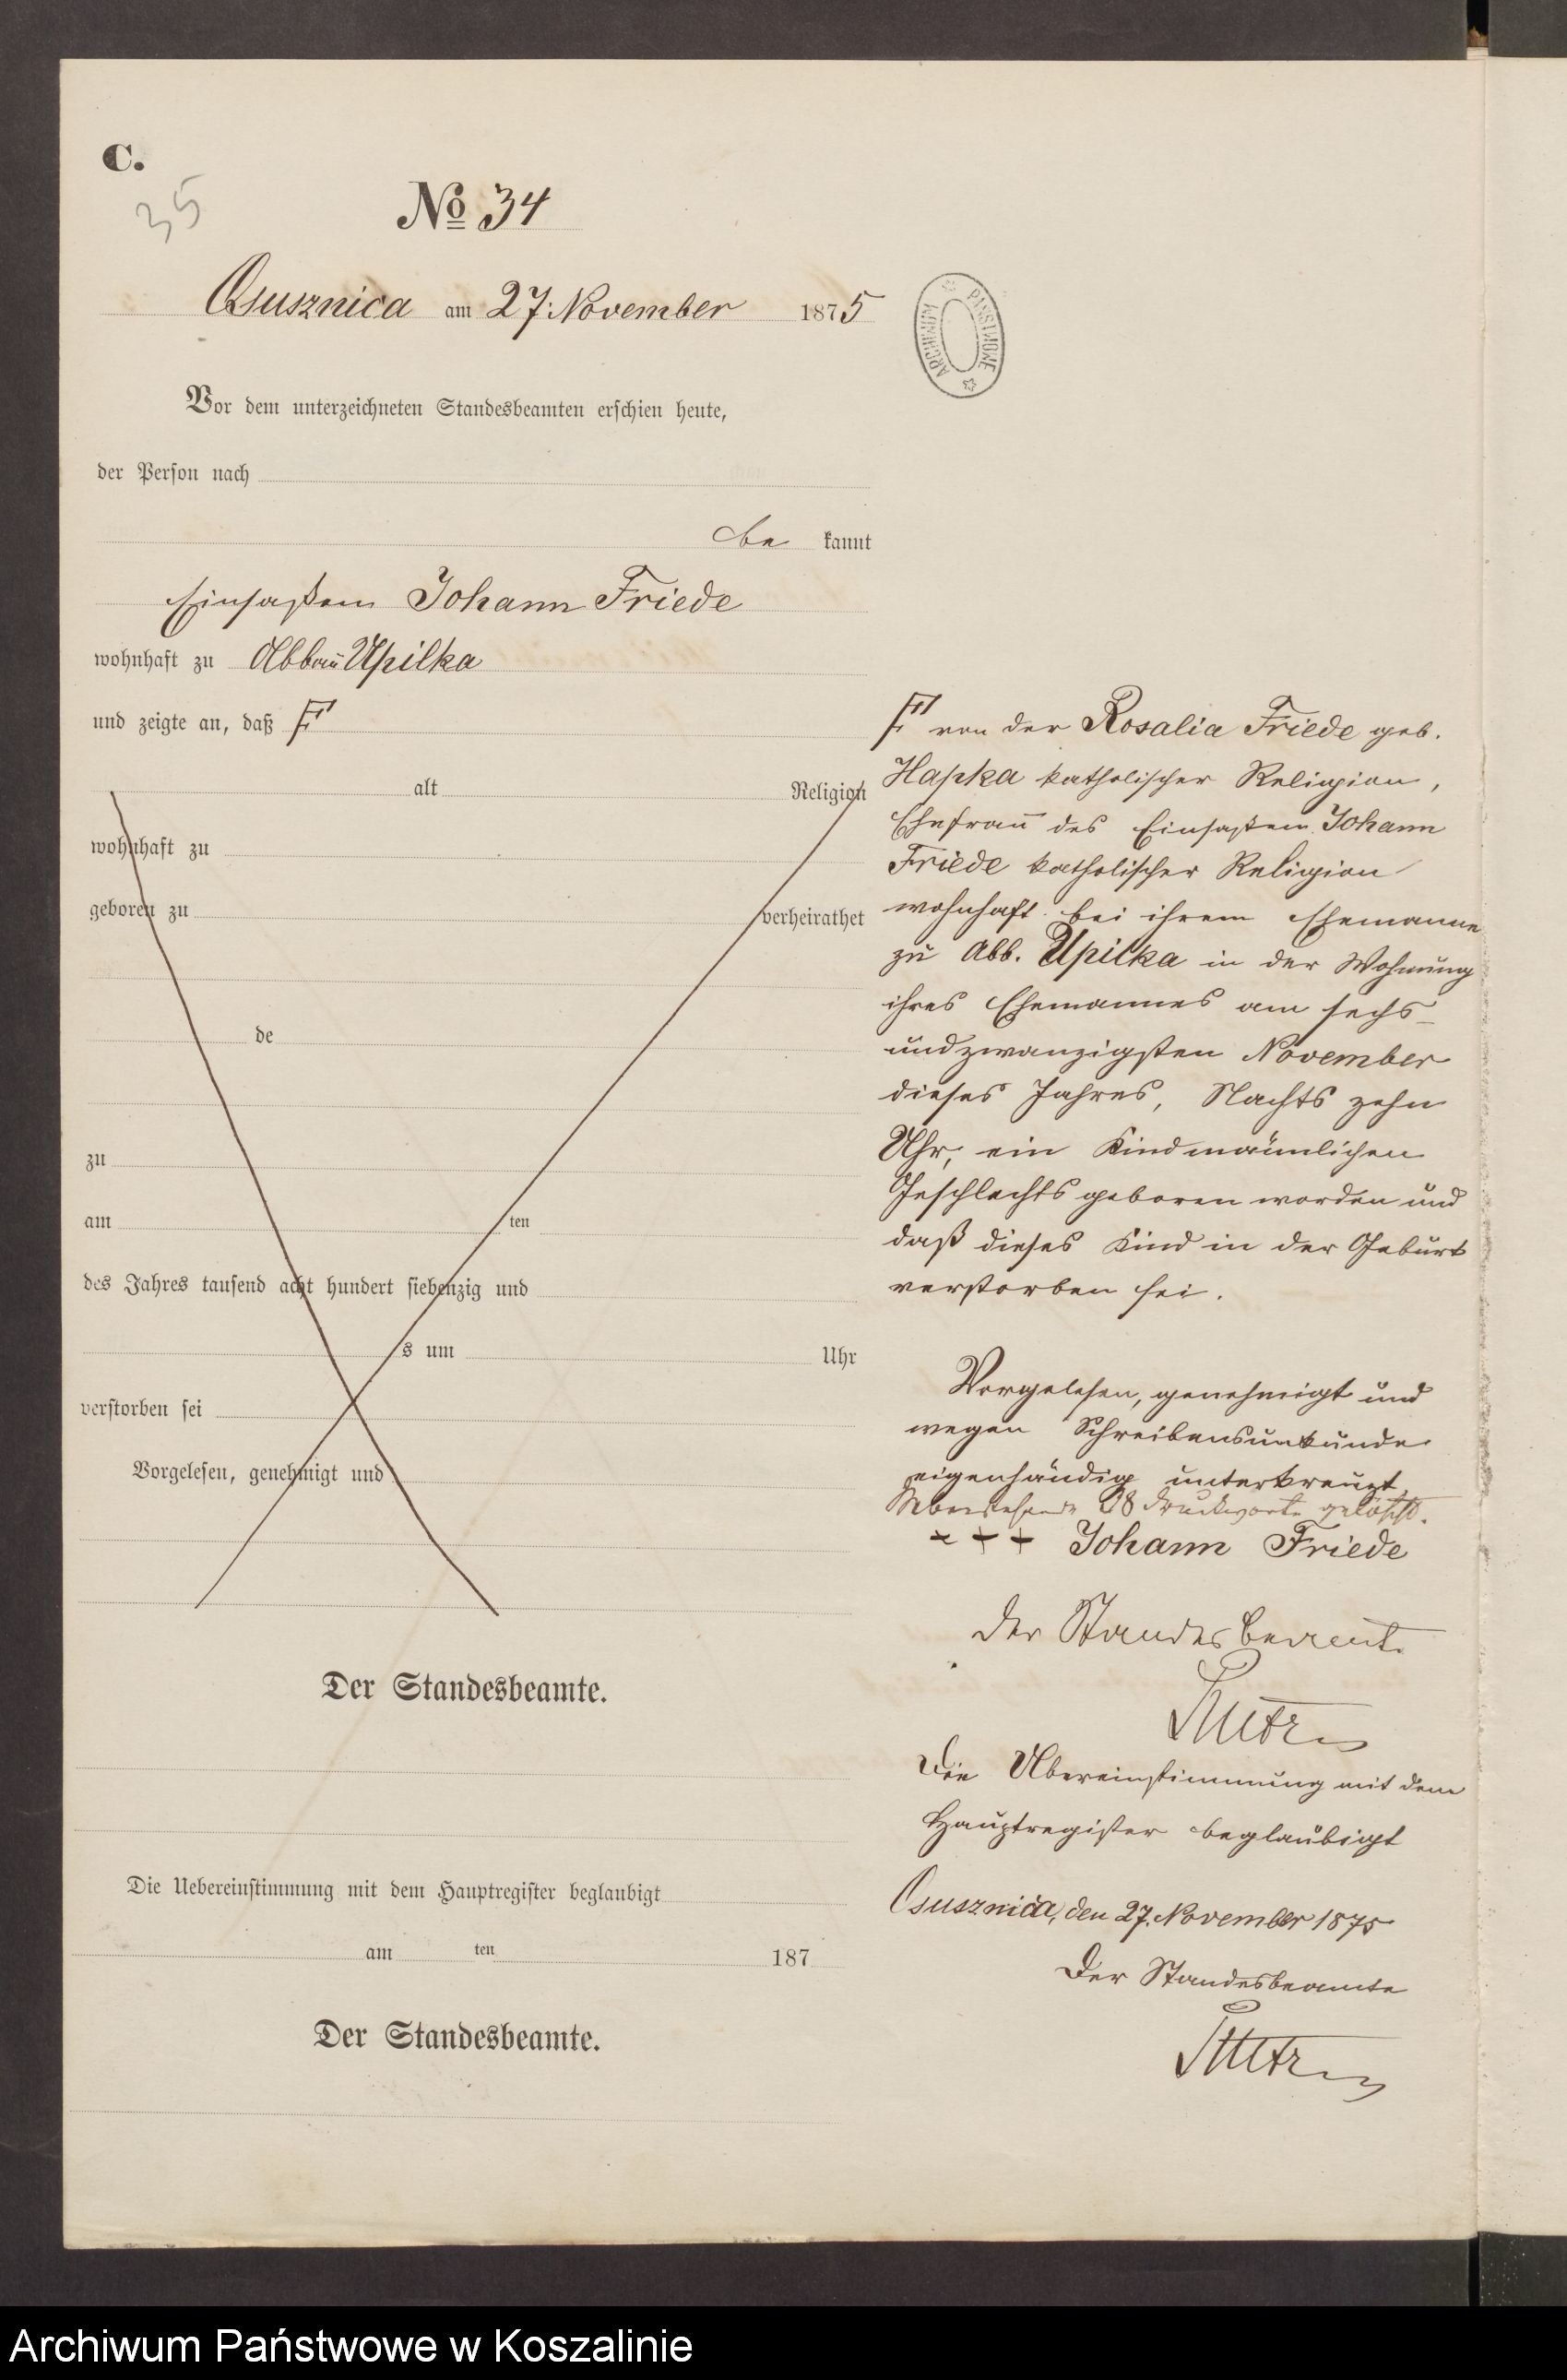 C.
35
No 34
Osusznica am 27. November 1875
Vor dem unterzeichneten Standesbeamten erschien heute,
der Person nach
be kannt
Einsaßen Johann Friede
wohnhaft zu Abbau Upilka
und zeigte an, daß
alt Religion
wohnhaft zu
geboren zu verheirathet
de
zu
am ten
des Jahres tausend acht hundert siebenzig und
s um Uhr
verstorben sei
Vorgelesen, genehmigt und
Der Standesbeamte.
Die Uebereinstimmung mit dem Hauptregister beglaubigt
am ten 187
Der Standesbeamte.
ARCHIWUM PAŃSTWOWE
von der Rosalia Friede geb.
Hapka katholischer Religion,
Ehefrau des Einsaßen Johann
Friede katholischer Religion
wohnhaft bei ihrem Ehemanne
zu Abb. Upilka in der Wohnung
ihres Ehemannes am sechs-
undzwanzigsten November
dieses Jahres, Nachts zehn
Uhr, ein Kind männlichen
Geschlechts geboren worden und
daß dieses Kind in der Geburt
verstorben sei.
Vorgelesen, genehmigt und
wegen Schreibensunkunde
eigenhändig unterkreuzt
Nebenstehende 28 Druckworte gelöscht.
+ + + Johann Friede
Der Standesbeamte
Die Übereinstimmung mit dem
Hauptregister beglaubigt
Osusznica, den 27. November 1875
Der Standesbeamte
Archiwum Państwowe w Koszalinie